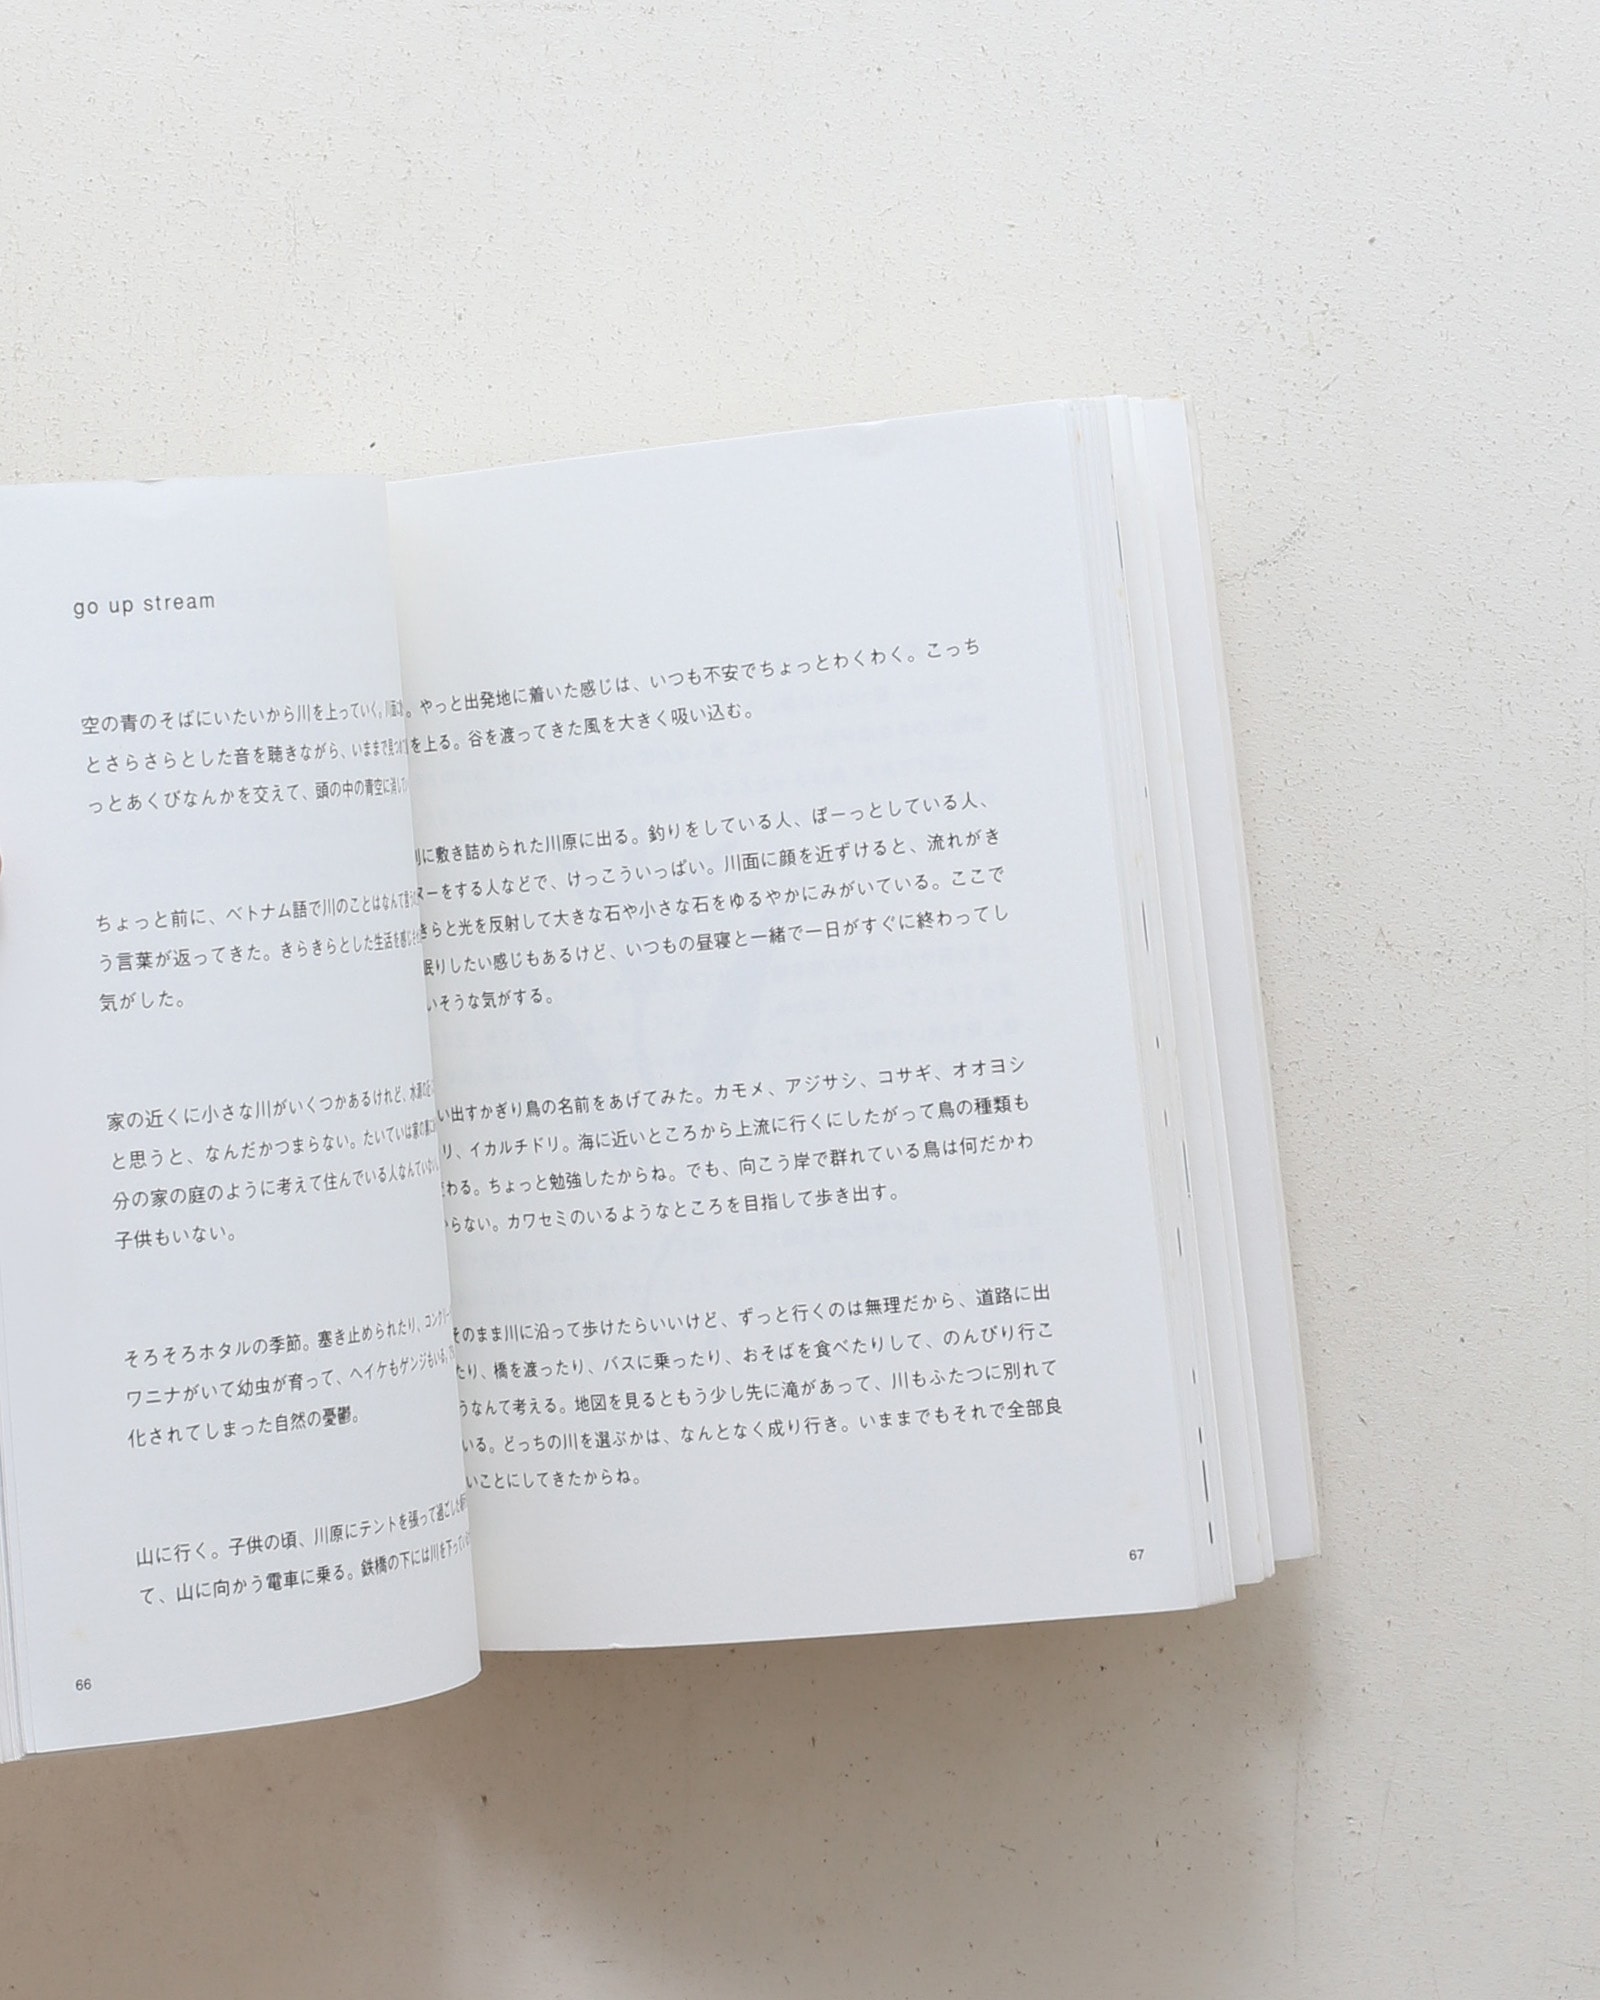 go up stream
空の青のそばにいたいから川を上っていく。川面に
とさらさらとした音を聴きながら、いままで見つめて
っとあくびなんかを交えて、頭の中の青空に消して
ちょっと前に、ベトナム語で川のことはなんて言うの
う言葉が返ってきた。きらきらとした生活を感じさせ
気がした。
家の近くに小さな川がいくつかあるけれど、水源の
と思うと、なんだかつまらない。たいていは家の裏に
分の家の庭のように考えて住んでいる人なんていない。
子供もいない。
そろそろホタルの季節。塞き止められたり、コンクリー
ワニナがいて幼虫が育って、ヘイケもゲンジもいる。
化されてしまった自然の憂鬱。
山に行く。子供の頃、川原にテントを張って過ごした
て、山に向かう電車に乗る。鉄橋の下には川を下ってい
66
。やっと出発地に着いた感じは、いつも不安でちょっとわくわく。こっち
を上る。谷を渡ってきた風を大きく吸い込む。
に敷き詰められた川原に出る。釣りをしている人、ぼーっとしている人、
ヌーをする人などで、けっこういっぱい。川面に顔を近ずけると、流れがき
きらと光を反射して大きな石や小さな石をゆるやかにみがいている。ここで
眠りしたい感じもあるけど、いつもの昼寝と一緒で一日がすぐに終わってし
いそうな気がする。
い出すかぎり鳥の名前をあげてみた。カモメ、アジサシ、コサギ、オオヨシ
リ、イカルチドリ。海に近いところから上流に行くにしたがって鳥の種類も
変わる。ちょっと勉強したからね。でも、向こう岸で群れている鳥は何だかわ
からない。カワセミのいるようなところを目指して歩き出す。
そのまま川に沿って歩けたらいいけど、ずっと行くのは無理だから、道路に出
たり、橋を渡ったり、バスに乗ったり、おそばを食べたりして、のんびり行こ
うなんて考える。地図を見るともう少し先に滝があって、川もふたつに別れて
いる。どっちの川を選ぶかは、なんとなく成り行き。いままでもそれで全部良
いことにしてきたからね。
67